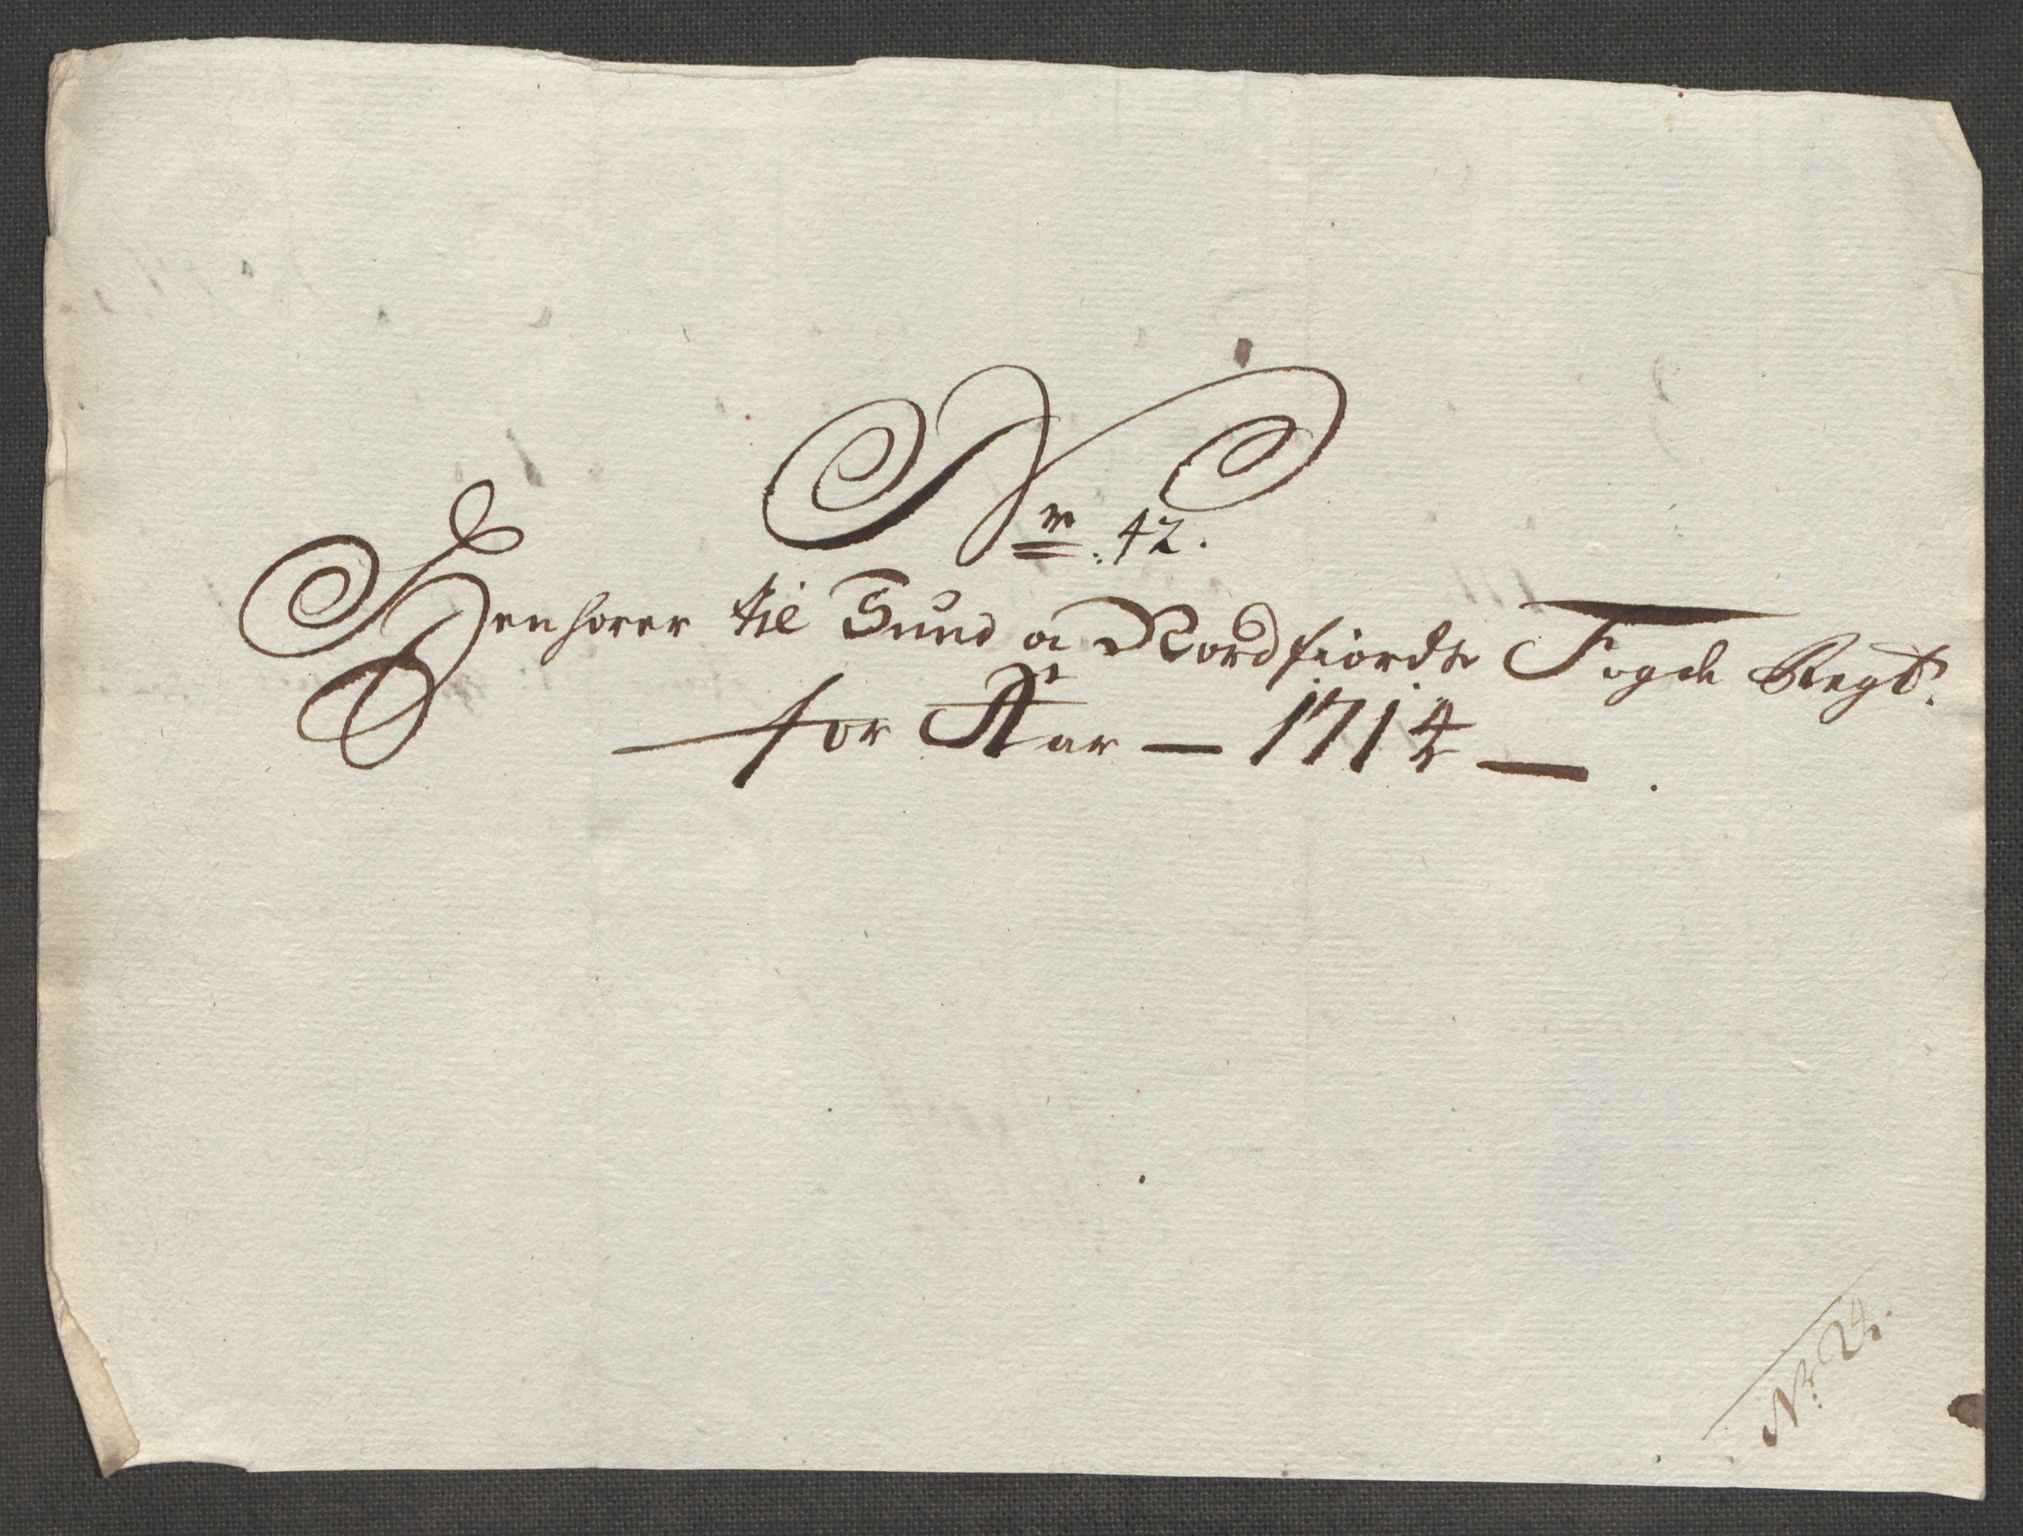 Nr: 42.
Henhører til Sund oc Nordfiords Fogde Regt:
for Aar — 1714 —
Nr: 24.